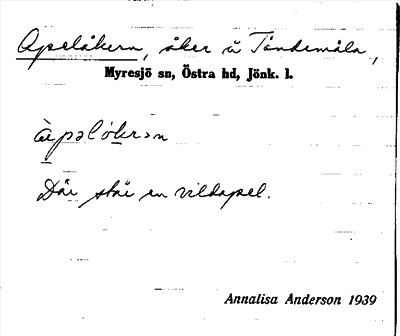 Apelåkern, åker å Tåndemåla,
Myresjö sn, Östra hd, Jönk. l.
àpəlókrən
Där står en vildapel.
Annalisa Anderson 1939